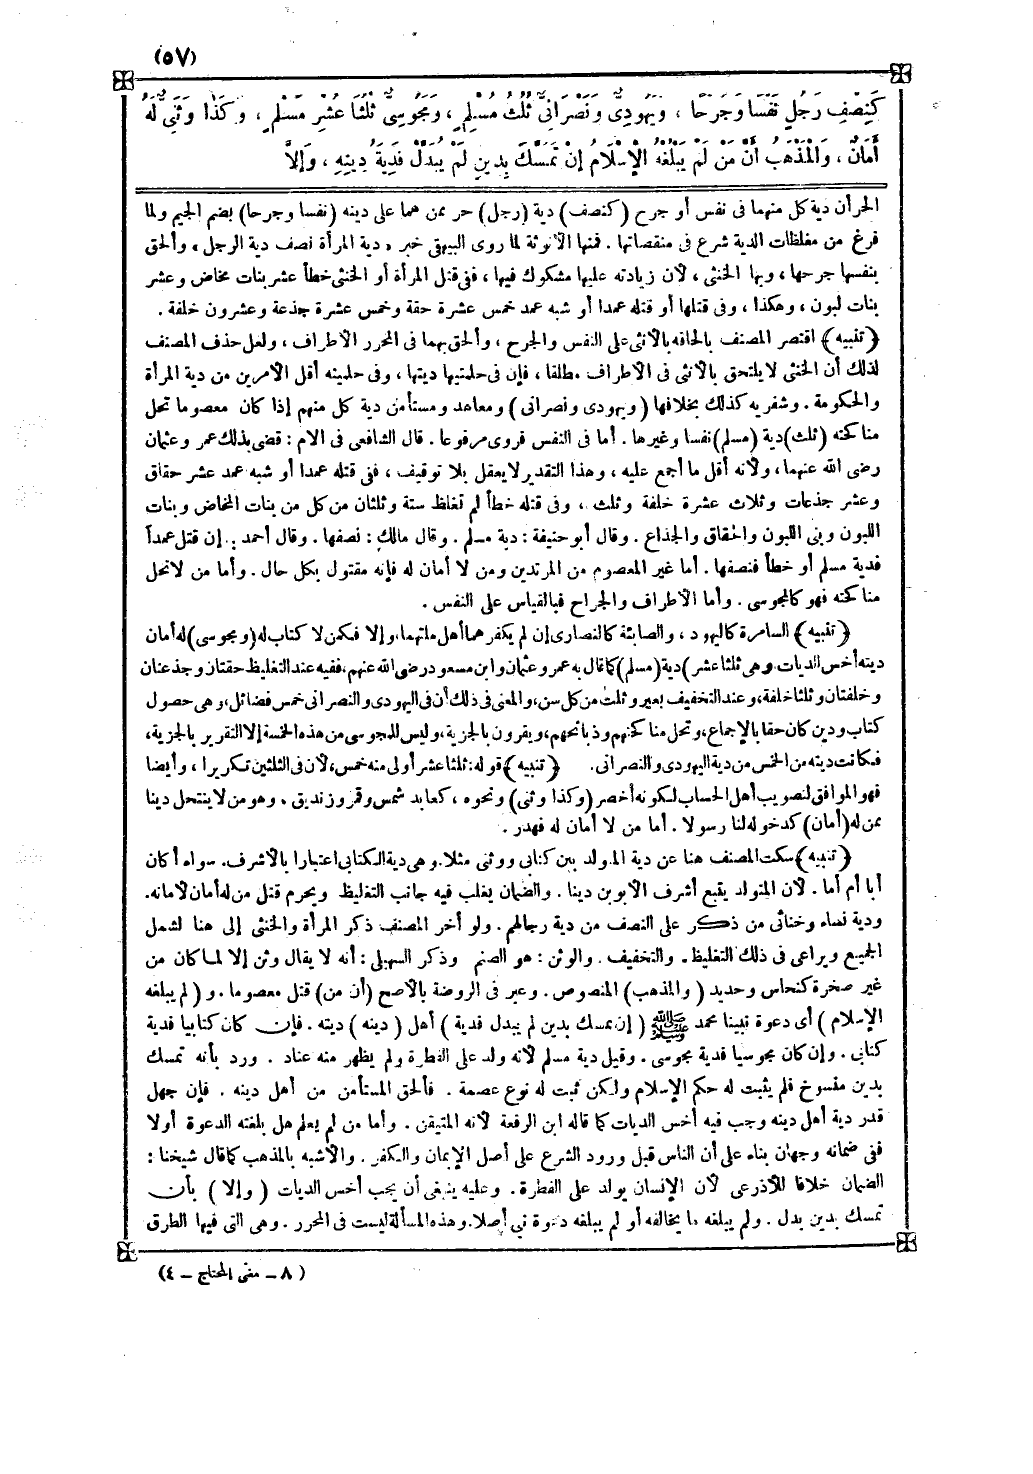 (٥٧)
كَنِصْفِ رَجُلٍ نَفْسًا وَجُرْحًا ، وَيَهُودِىٌّ وَنَصْرَانِىٌّ ثُلُثُ مُسْلِمٍ ، وَمَجُوسِىٌّ ثُلُثَا عُشْرِ مُسْلِمٍ ، وَكَذَا وَثَنِىٌّ لَهُ
أَمَانٌ ، وَالْمَذْهَبُ أَنَّ مَنْ لَمْ يَبْلُغْهُ الْإِسْلَامُ إِنْ تَمَسَّكَ بِدِينٍ لَمْ يُبَدَّلْ فَدِيَةُ دِينِهِ ، وَإِلاَّ
الحر أن دية كل منهما فى نفس أو جرح (كنصف) دية (رجل) حر ممن هما على دينه (نفسا وجرحا) بضم الجيم ولما
فرغ من مغلظات الدية شرع فى منقصاتها . فمنها الأنوثة لما روى البيهقى خبر « دية المرأة نصف دية الرجل » وألحق
بنفسها جرحها ، وبها الخنثى ، لأن زيادته عليها مشكوك فيها ، ففى قتل المرأة أو الخنثى خطأ عشر بنات مخاض وعشر
بنات لبون ، وهكذا ، وفى قتلها أو قتله عمدا أو شبه عمد خمس عشرة حقة وخمس عشرة جذعة وعشرون خلفة .
﴿تنبيه﴾ اقتصر المصنف بإلحاقه بالأنثى على النفس والجرح ، وألحق بهما فى المحرر الأطراف ، ولعل حذف المصنف
لذلك أن الخنثى لا يلتحق بالأنثى فى الأطراف مطلقا ، فإن فى حلمتيها ديتها ، وفى حلمتيه أقل الأمرين من دية المرأة
والحكومة . وشفريه كذلك بخلافها (ويهودى ونصرانى) ومعاهد ومستأمن دية كل منهم إذا كان معصوما تحل
مناكحته (ثلث) دية (مسلم) نفسا وغيرها . أما فى النفس فروى مرفوعا . قال الشافعى فى الأم : قضى بذلك عمر وعثمان
رضى الله عنهما ، ولأنه أقل ما أجمع عليه ، وهذا التقدير لا يعقل بلا توقيف ، ففى قتله عمدا أو شبه عمد عشر حقاق
وعشر جذعات وثلاث عشرة خلفة وثلث ، وفى قتله خطأ لم تغلظ ستة وثلثان من كل من بنات المخاض وبنات
اللبون وبنى اللبون والحقاق والجذاع . وقال أبو حنيفة : دية مسلم . وقال مالك : نصفها . وقال أحمد : إن قتل عمداً
فدية مسلم أو خطأ فنصفها . أما غير المعصوم من المرتدين ومن لا أمان له فإنه مقتول بكل حال . وأما من لا تحل
مناكحته فهو كالمجوسى . وأما الأطراف والجراح فبالقياس على النفس .
﴿تنبيه﴾ السامرة كاليهود ، والصابئة كالنصارى إن لم يكفرهما أهل ملتهما ، وإلا فكمن لا كتاب له (ومجوسى) له أمان
ديته أخس الديات ، وهى ثلثا عشر) دية (مسلم) كما قال به عمر وعثمان وابن مسعود رضى الله عنهم ، ففيه عند التغليظ حقتان وجذعتان
وخلفتان وثلثا خلفة ، وعند التخفيف بعير وثلث من كل سن ، والمعنى فى ذلك أن فى اليهودى والنصرانى خمس فضائل ، وهى حصول
كتاب ودين كان حقا بالإجماع ، وتحل مناكحتهم وذبائحهم ، ويقرون بالجزية ، وليس للمجوسى من هذه الخمسة إلا التقرير بالجزية ،
فكانت ديته من الخمس من دية اليهودى والنصرانى . ﴿تنبيه﴾ قوله : ثلثا عشر أولى منه خمس ، لأن فى الثلثين تكريرا ، وأيضا
فهو الموافق لتصويب أهل الحساب لكونه أخصر (وكذا وثنى) ونحوه ، كعابد شمس وقمر وزنديق . وهو من لا ينتحل دينا
ممن له (أمان) كدخوله لنا رسولا . أما من لا أمان له فهدر .
﴿تنبيه﴾ سكت المصنف هنا عن دية المولد بين كتابى ووثنى مثلا . وهى دية الكتابى اعتبارا بالأشرف . سواء أكان
أبا أم أما . لأن المتولد يتبع أشرف الأبوين دينا . والضمان يغلب فيه جانب التغليظ ويحرم قتل من له أمان لأمانه.
ودية نساء وخناثى من ذكر على النصف من دية رجالهم . ولو أخر المصنف ذكر المرأة والخنثى إلى هنا لشمل
الجميع ويراعى فى ذلك التغليظ . والتخفيف . والوثن : هو الصنم وذكر السهيلى : أنه لا يقال وثن إلا لما كان من
غير صخرة كنحاس وحديد (والمذهب) المنصوص . وعبر فى الروضة بالأصح (أن من) قتل معصوما . و (لم يبلغه
الإسلام) أى دعوة نبينا محمد ﷺ (إن تمسك بدين لم يبدل فدية) أهل (دينه) ديته . فإن كان كتابيا فدية
كتابى . وإن كان مجوسيا فدية مجوسى . وقيل دية مسلم لأنه ولد على الفطرة ولم يظهر منه عناد . ورد بأنه تمسك
بدين منسوخ فلم يثبت له حكم الإسلام ولكن ثبت له نوع عصمة . فألحق المستأمن من أهل دينه . فإن جهل
قدر دية أهل دينه وجب فيه أخس الديات كما قاله ابن الرفعة لأنه المتيقن . وأما من لم يعلم هل بلغته الدعوة أولا
ففى ضمانه وجهان بناء على أن الناس قبل ورود الشرع على أصل الإيمان والكفر . والأشبه بالمذهب كما قال شيخنا :
الضمان خلافا للأذرعى لأن الإنسان يولد على الفطرة . وعليه ينبغى أن يجب أخس الديات (وإلا) بأن
تمسك بدين بدل . ولم يبلغه ما يخالفه أو لم يبلغه دعوة نبى أصلا . وهذه المسألة ليست فى المحرر . وهى التى فيها الطرق
( ٨ – مغنى المحتاج – ٤ )